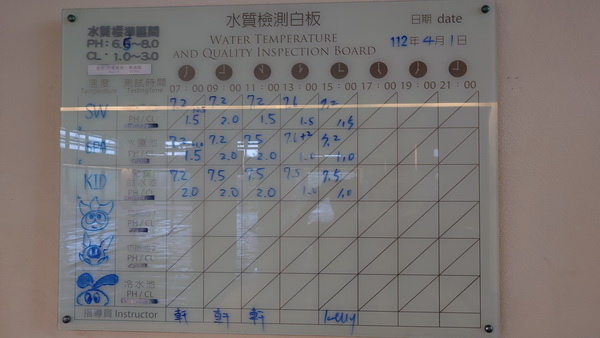 水質檢測白板
WATER TEMPERATURE
AND QUALITY INSPECTION BOARD
日期 date
112年4月1日
水質標準區間
PH：6.5~8.0
CL：1.0~3.0
溫度 測試時間
Temperature Testing Time
07：00 09：00 11：00 13：00 15：00 17：00 19：00 21：00
SW 7.2 7.2 7.2 7.6
PH / CL 1.5 2.0 1.5 1.5 1.5
SPA 7.2 7.2 7.5 7.6 7.2
PH / CL 1.5 2.0 2.0 1.0
KID 7.2 7.5 7.5 7.5 7.5
PH / CL 2.0 2.0 2.0 1.0 1.0
PH / CL
PH / CL
冷水池
PH / CL
指導員 Instructor 軒 軒 軒 Kelly